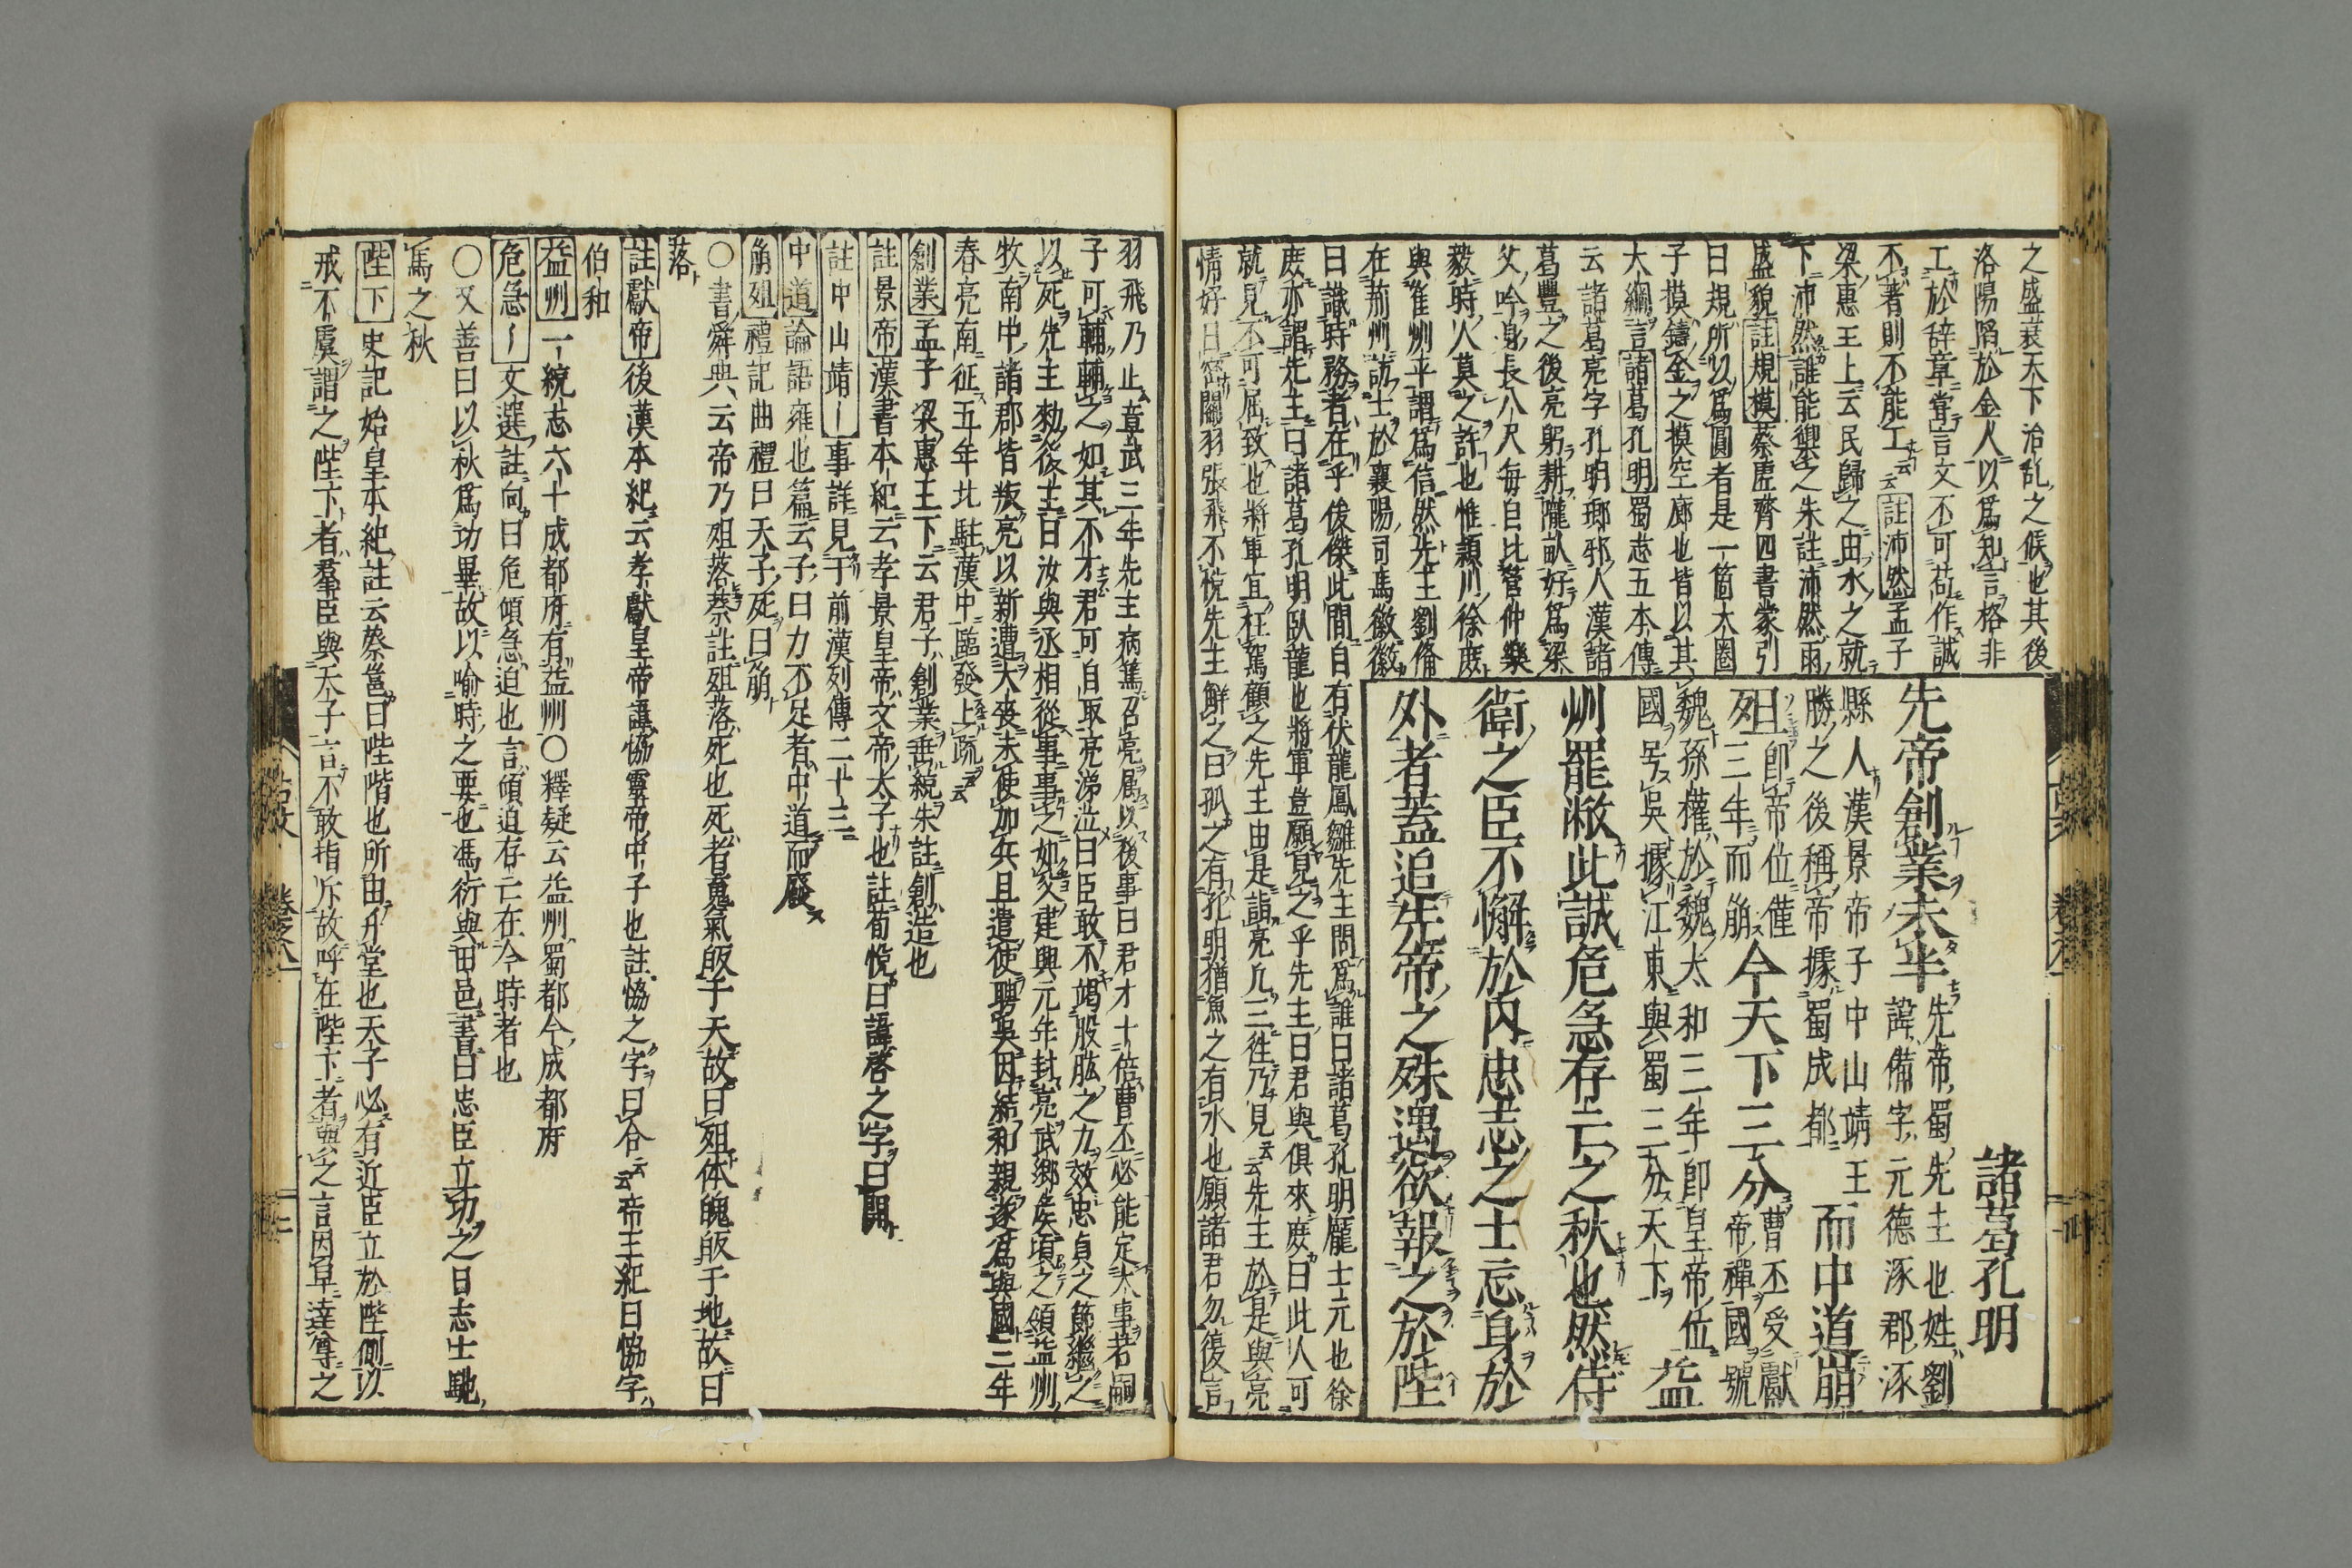 之盛衰天下治乱之候也其後
洛陽陷於金人以爲知言格非
工於辞章嘗言文不可苟作誠
不著則不能工云云註沛然孟子
梁惠王上云民歸之由水之就
下沛然誰能禦之朱註沛然雨
盛貌註規摸蔡虛齊四書蒙引
曰規所以爲圓者是一箇大圏
子摸鑄金之摸空廓也皆以其
大綱言諸葛孔明蜀志五本傳
云諸葛亮字孔明瑯邪人漢諸
葛豐之後亮躬耕隴畝好爲梁
父吟身長八尺毎自比管仲樂
毅時人莫之許也惟頴川徐庶
與崔州平謂爲信然先主劉俻
在荊州訪士於襄陽司馬徽徽
諸葛孔明
先帝創業未半先帝蜀先主也姓劉
諱備字元德涿郡涿
縣人漢景帝子中山靖王
勝之後稱帝據蜀成都而中道崩
殂即帝位僅
三年而崩今天下三分曹丕受獻
帝禪國號
魏孫權於魏太和三年即皇帝位
國号吳據江東與蜀三分天下益
州罷敝此誠危急存亡之秋也然侍
衛之臣不懈於內忠志之士忘身於
外者蓋追先帝之殊遇欲報之於陛
曰識時務者在乎俊傑此間自有伏龍鳳雛先主問爲誰曰諸葛孔明龐士元也徐
庶亦謂先主曰諸葛孔明臥龍也將軍豈願見之乎先主曰君與俱來庶曰此人可
就見不可屈致也將軍宜枉駕顧之先主由是詣亮凡三徃乃見云云先主於是與亮
情好日密關羽張飛不悅先主觧之曰孤之有孔明猶魚之有水也願諸君勿復言
羽飛乃止章武三年先主病篤召亮屬以後事曰君才十倍曹丕必能定大事若嗣
子可輔輔之如其不才君可自取亮涕泣曰臣敢不竭股肱之力效忠貞之節繼之
以死先主勑後主曰汝與丞相從事事之如父建興元年封亮武鄉侯頃之領益州
牧南中諸郡皆叛亮以新遭大喪未便加兵且遣使聘吳因結和親遂爲與國三年
春亮南征五年北駐漢中臨發上疏云云
創業孟子梁惠王下云君子創業垂統朱註創造也
註景帝漢書本紀云孝景皇帝文帝太子也註荀悅曰諱啓之字曰開
註中山靖〡事詳見于前漢列傳二十三
中道論語雍也篇云子曰力不足者中道而廢
崩殂禮記曲禮曰天子死曰崩
〇書舜典云帝乃殂落蔡註殂落死也死者魂氣皈于天故曰殂体魄皈于地故曰
落
註獻帝後漢本紀云孝獻皇帝諱恊靈帝中子也註恊之字曰合云云帝王紀曰恊字
伯和
益州一統志六十成都府有益州〇釋疑云益州蜀都今成都府
危急〡文選註向曰危傾急迫也言傾迫存亡在今時者也
〇又善曰以秋爲功畢故以喻時之要也馮衍與田邑書曰忠臣立功之日志士馳
馬之秋
陛下史記始皇本紀註云蔡邕曰陛階也所由升堂也天子必有近臣立於陛側以
戒不虞謂之陛下者羣臣與天子言不敢指斥故呼在陛下者與之言因卑達尊之